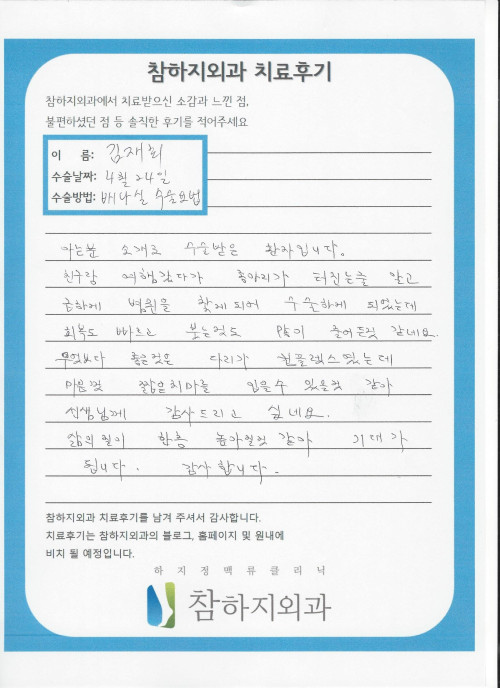 참하지외과 치료후기
참하지외과에서 치료받으신 소감과 느낀 점,
불편하셨던 점 등 솔직한 후기를 적어주세요
이 름: 김재희
수술날짜: 4월 24일
수술방법: 베나실 수술요법
아는분 소개로 수술받은 환자입니다.
친구랑 여행갔다가 종아리가 터진는줄 알고
급하게 병원을 찾게되어 수술하게 되었는데
회복도 빠르고 붓는것도 많이 줄어든것 같네요.
무엇보다 좋은것은 다리가 컨플렉스였는데
마음껏 짧은치마를 입을수 있을것 같아
선생님께 감사드리고 싶네요.
삶의 질이 한층 높아질것 같아 기대가
됩니다. 감사합니다.
참하지외과 치료후기를 남겨 주셔서 감사합니다.
치료후기는 참하지외과의 블로그, 홈페이지 및 원내에
비치 될 예정입니다.
하지정맥류클리닉
참하지외과